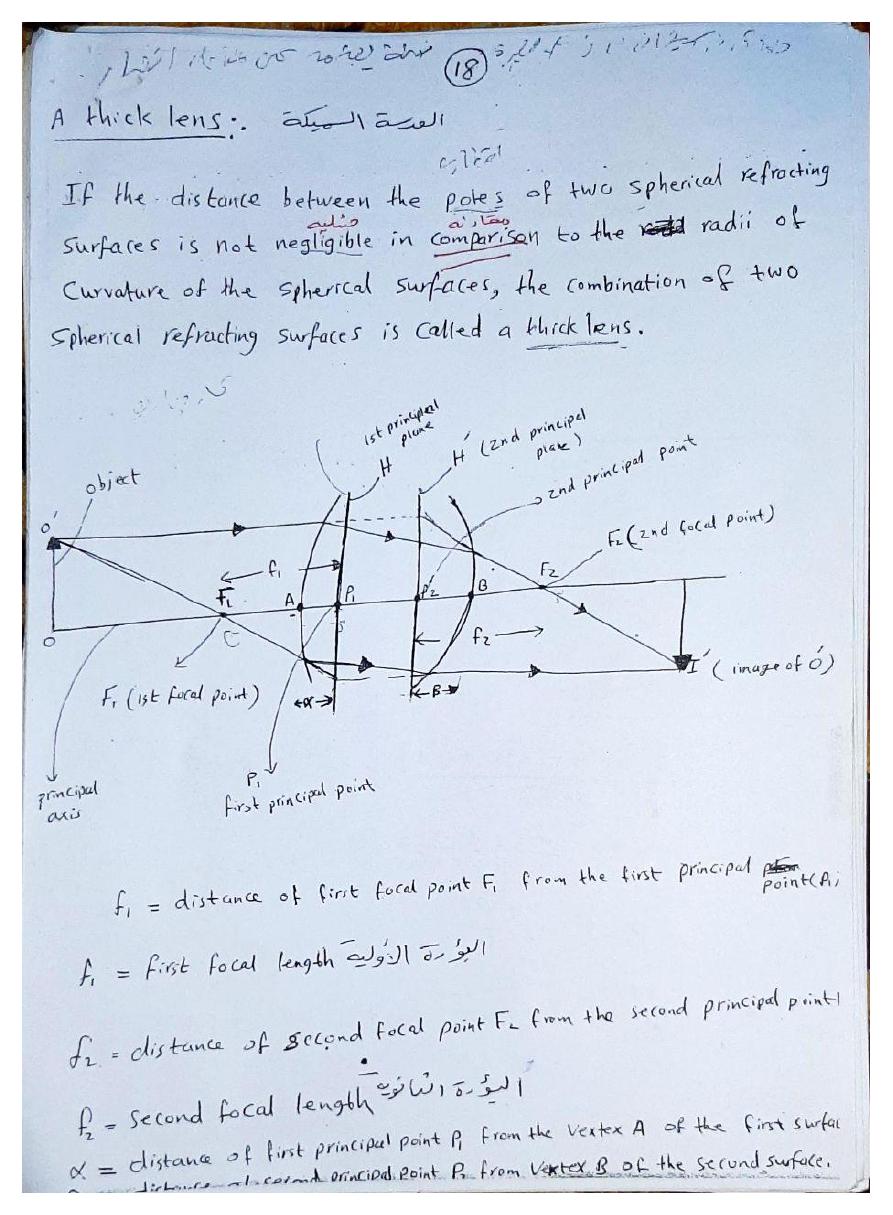 18
A thick lens:. العدسة السميكة
If the distance between the poles of two spherical refracting
مقارنة
surfaces is not negligible in comparison to the radii of
Curvature of the spherical surfaces, the combination of two
Spherical refracting surfaces is called a thick lens.
1st principal
plane
H
H' (2nd principal
plane)
2nd principal point
object
O'
F2 (2nd focal point)
f1
F1
A
P1
P'2
B
F2
O
f2
I' (image of O')
F1 (1st focal point)
α
B
P1
first principal point
principal
axis
f1 = distance of first focal point F1 from the first principal
point (P1
f1 = first focal length البؤرة الأولية
f2 = distance of second focal point F2 from the second principal point
f2 = Second focal length البؤرة الثانوية
α = distance of first principal point P1 from the vertex A of the first surfac
distance of second principal point P2 from Vertex B of the second surface.